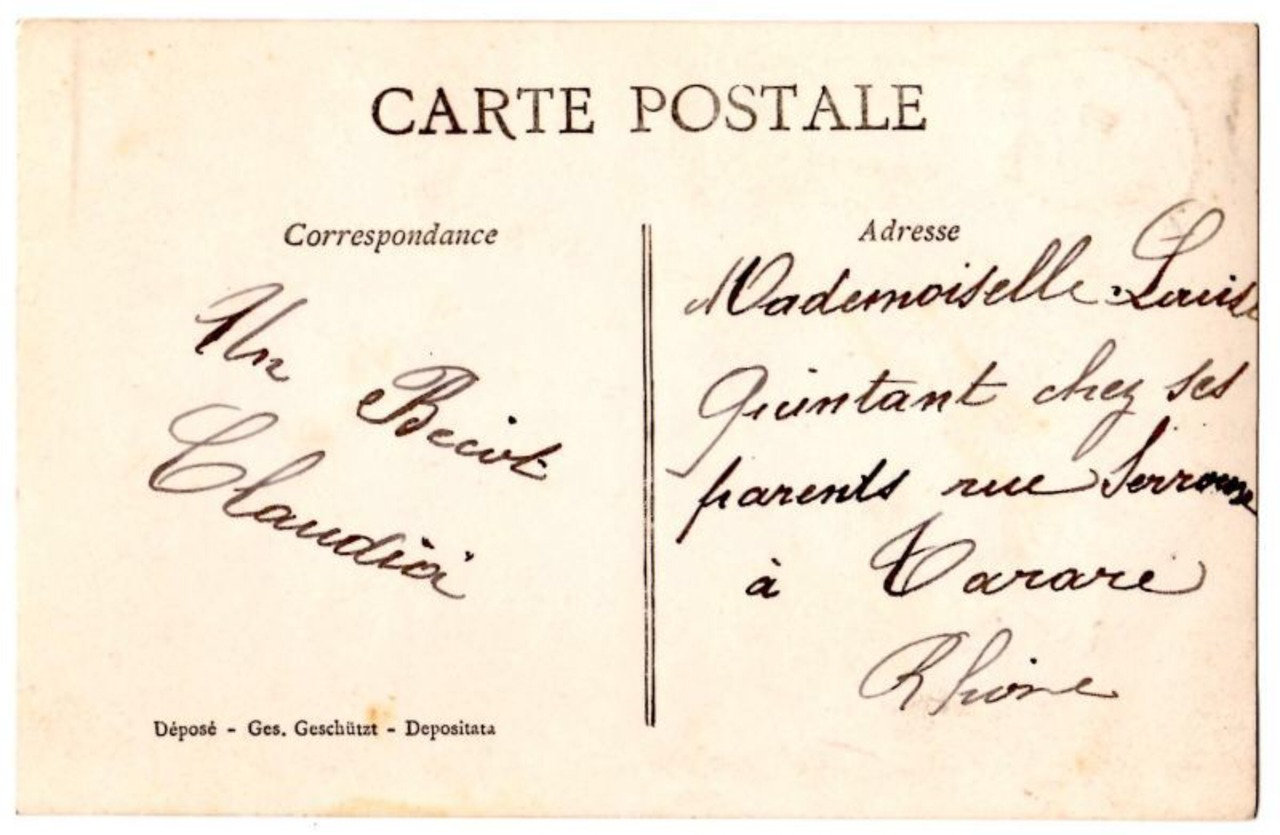 CARTE POSTALE
Correspondance
Un
Becot
Claudioi
Déposé - Ges. Geschützt - Depositata
Adresse
Mademoiselle Louise
Quintant chez ses
parents rue
à Tarare
Rhône